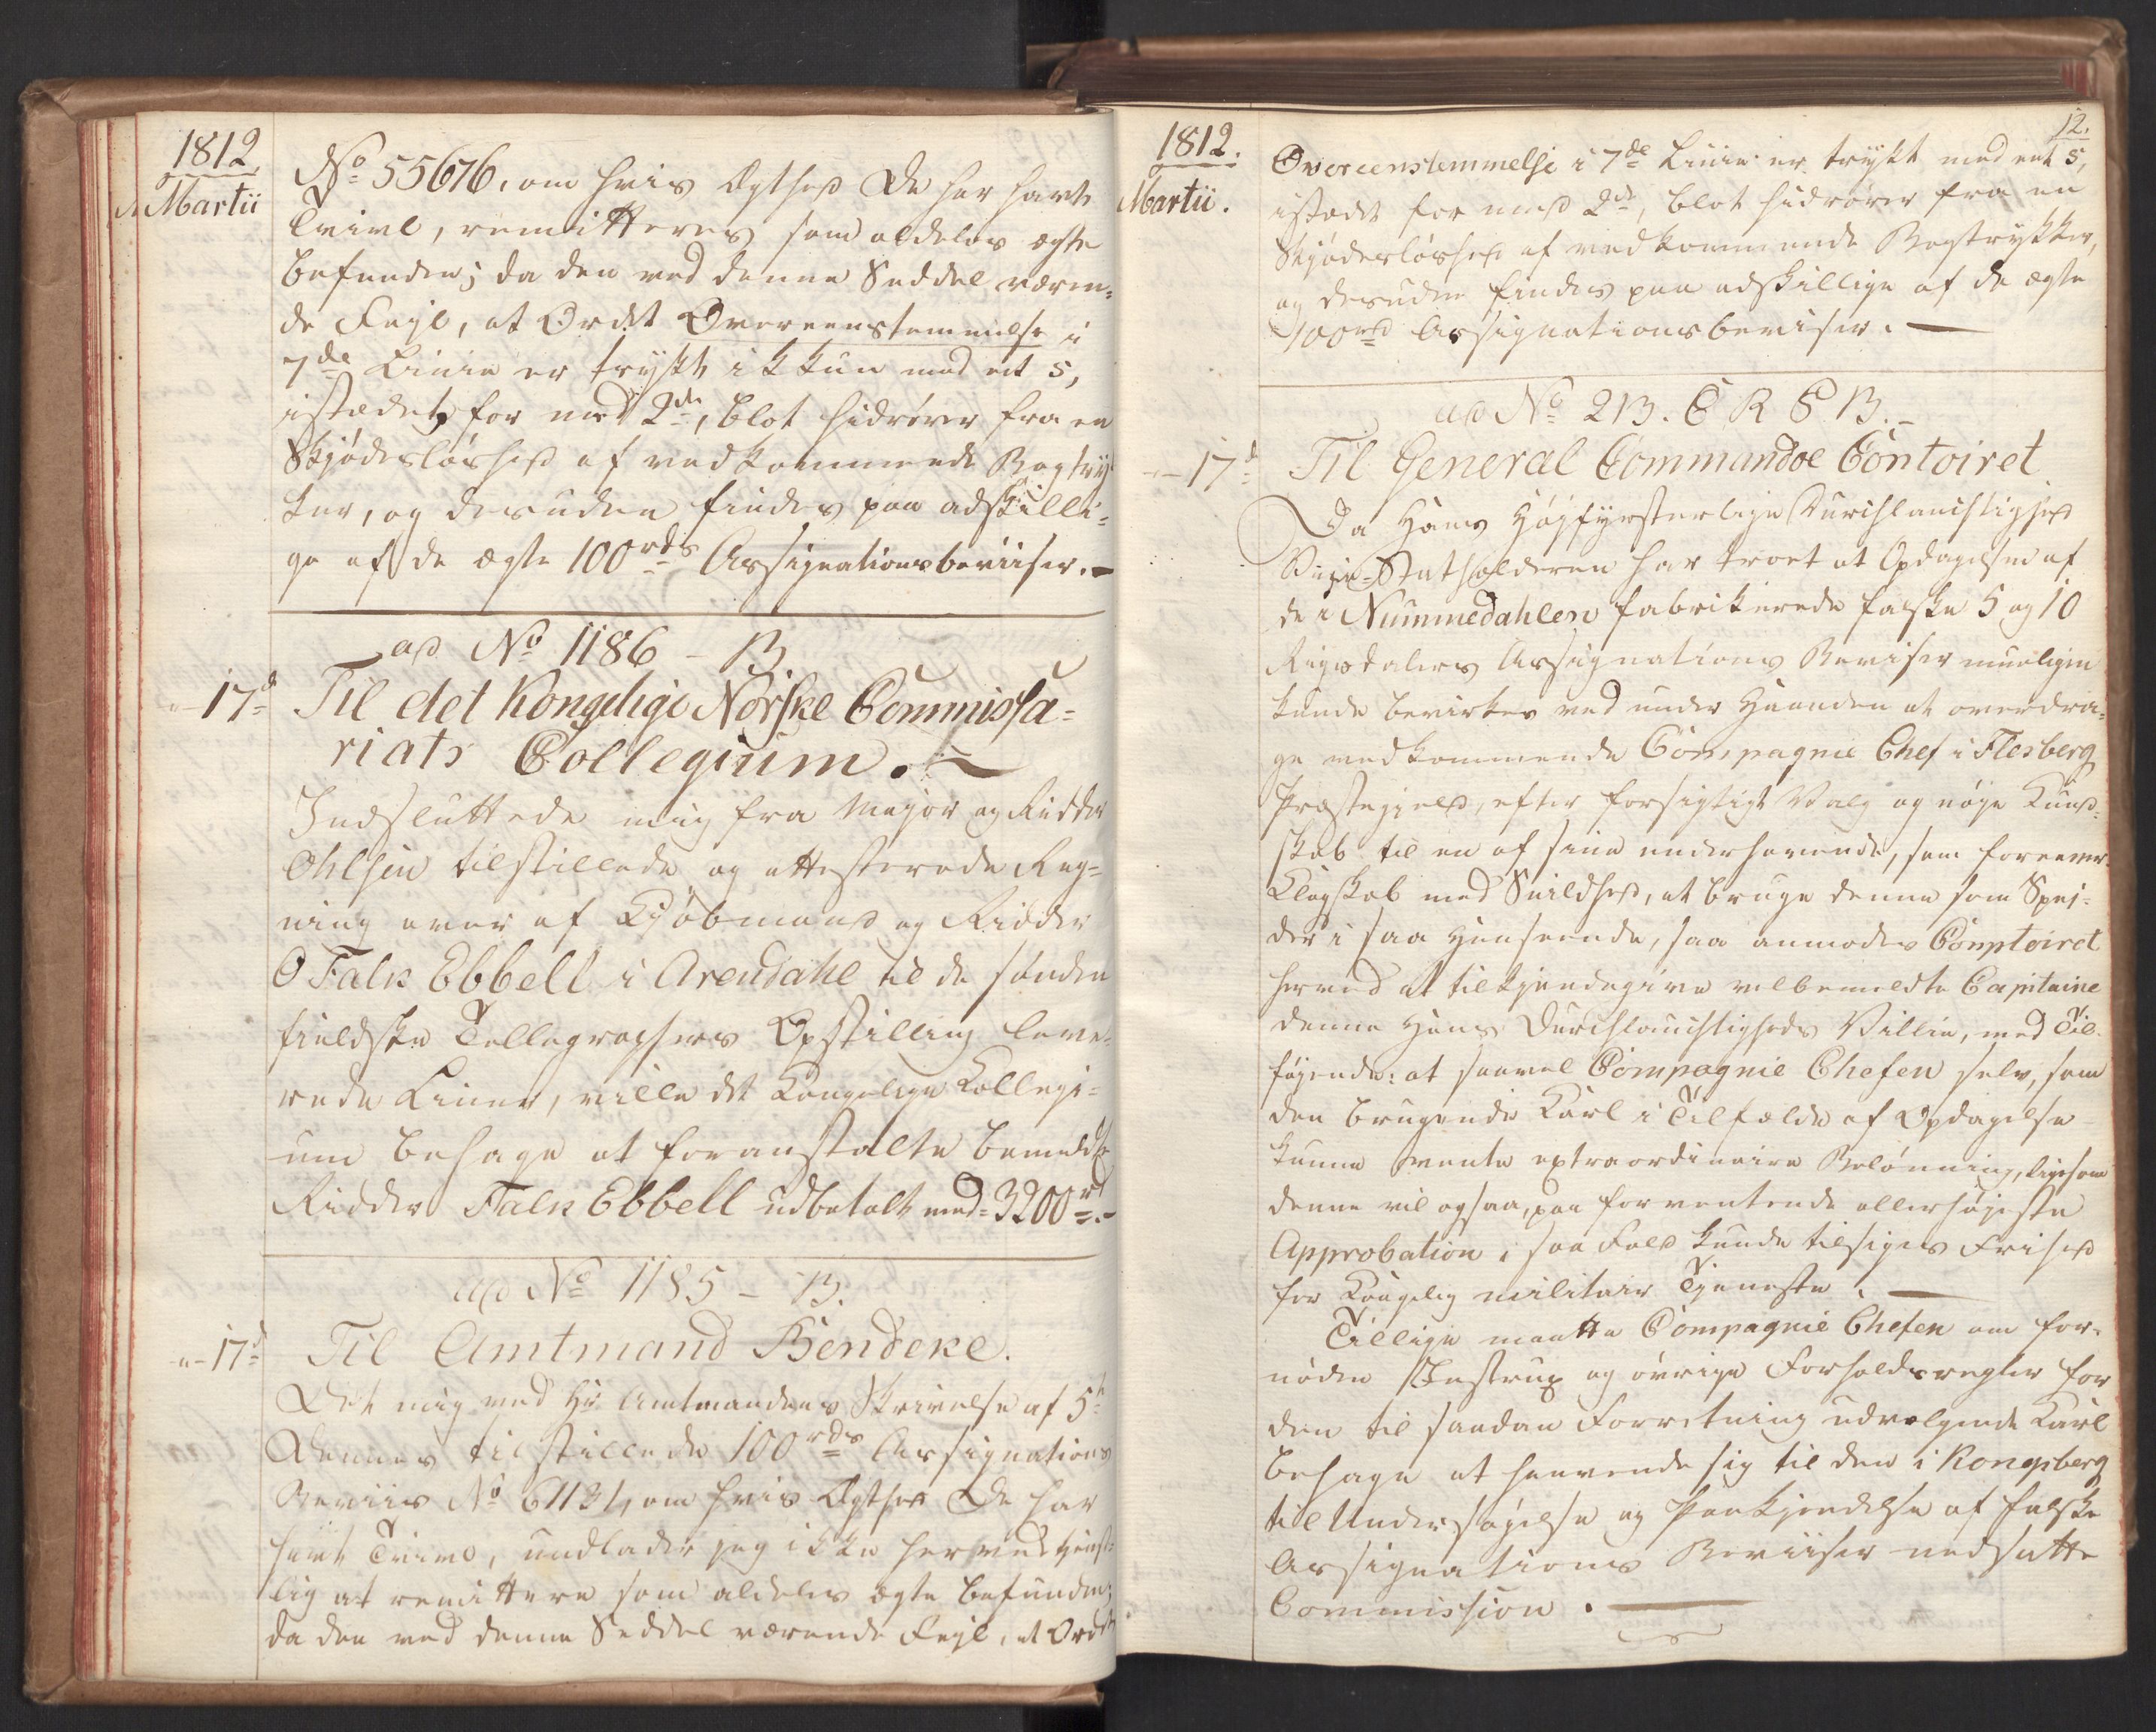 1812.
Martii
No 55676, om hvis Ægthed De har havt
Tvivl, remitteres som aldeles ægte
befunden; da den ved denne Seddel væren-
de Fejl, at Ordet Overeenstemmelse i
7de Linie er trykt ikkun med et s,
istædet for med 2de, blot hidrører fra en
Skjødesløshed af vedkommende Bogtryk-
ker, og desuden findes paa adskilli-
ge af de ægte 100rds Assignationsbeviiser.
ad No 1186 - B.
17d Til det Kongelige Norske Commissa-
riats Collegium.
Indsluttede mig fra Major og Ridder
Ohlsen tilstillede og attesterede Reg-
ning over af Kjøbmand og Ridder
O Falk Ebbell i Arendahl til de sønden
fieldske Tellegraphers Opstilling leve-
rede Liner, ville det Kongelige Collegi-
um behage at foranstalte bemeldte
Ridder Falk Ebbell udbetalt med 3200rd.
ad No 1185 - B.
17d Til Amtmand Bendeke.
Det mig med Hr Amtmandens Skrivelse af 5te
Dennes tilstillede 100rds Assignations
Beviis No 61131, om hvis Ægthed De har
havt Tvivl, undlader jeg ikke herved tjenst-
lig at remittere som aldeles ægte befunden;
da den ved denne Seddel værende Fejl, at Ordet
12.
1812.
Martii.
Overeenstemmelse i 7de Linie er trykt med eet s,
istædet for med 2de, blot hidrører fra en
Skjødesløshed af vedkommende Bogtrykker,
og desuden findes paa adskillige af de ægte
100rd Assignationsbeviser.
ad No 213. C R S B.
17d Til General Commandoe Contoiret
Da Hans Højfyrsterlige Durchlauchtighed
Vize-Statholderen har troet at Opdagelsen af
de i Nummedahlen fabrikerede falske 5 og 10
Rigsdalers Assignations Beviser mueligen
kunde bevirkes ved under Haanden at overdra-
ge vedkommende Compagnie Chef i Flesberg
Præstegjeld, efter forsigtigt Valg og nøye Kund-
skab til en af sine underhavende, som foreener
Klogskab med Snildhed, at bruge denne som Spej-
der i saa Henseende, saa anmodes Comptoiret
herved at tilkjendegive velbemeldte Capitaine
denne Hans Durchlauchtigheds Villie, med Til-
føjende: at saavel Compagnie Chefen selv, som
den brugende Karl i Tilfælde af Opdagelse
kunne vente extraordinaire Belønning, ligesom
denne vil ogsaa, paa forventende allerhøjeste
Approbation i saa Fald kunde tilsiges Frihed
for Kongelig militair Tjeneste.
Tillige maatte Compagnie Chefen om for-
nøden Instrux og øvrige Forholdsregler for
den til saadan Forretning udvælgende Karl
behage at henvende sig til den i Kongsberg
til Undersøgelse og Paakjendelse af falske
Assignations Beviiser nedsatte
Commission.